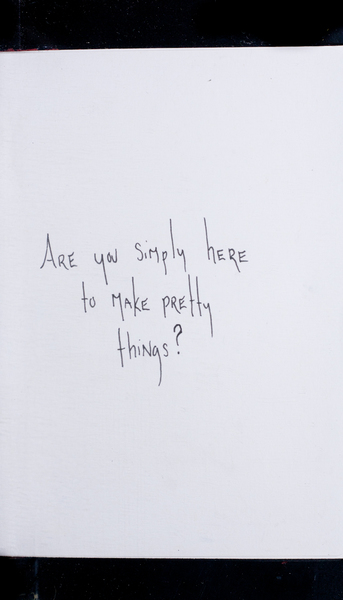 Are you simply here
to make pretty
things?